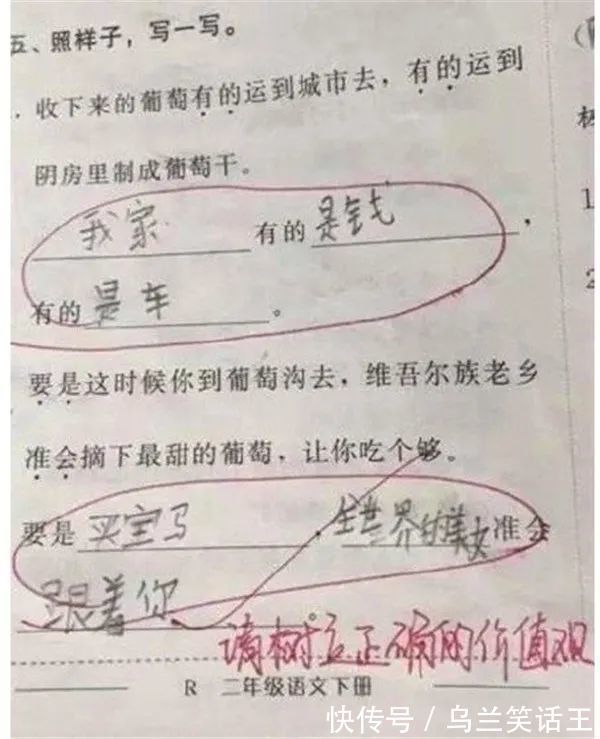 五、照样子，写一写。
．收下来的葡萄有的运到城市去，有的运到
阴房里制成葡萄干。
我家有的是钱，
有的是车。
要是这时候你到葡萄沟去，维吾尔族老乡
准会摘下最甜的葡萄，让你吃个够。
要是买宝马，全世界的美女准会
跟着你。
请树立正确的价值观
R 二年级语文下册
快传号／乌兰笑话王